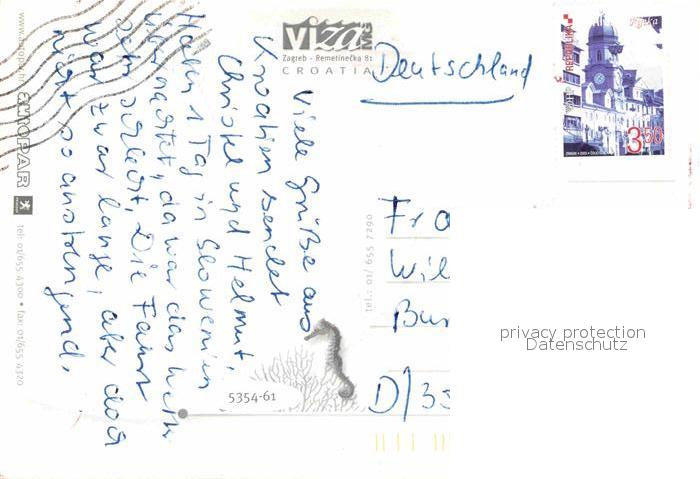 Viele Grüße aus
Kroatien sendet
Christel und Helmut.
Haben 1 Tag in Slowenien
übernachtet, da war das Wetter
sehr schlecht. Die Fahrt
war zwar lange, aber doch
nicht so anstrengend.
VIZA
Zagreb - Remetinečka 81
CROATIA
Deutschland
REPUBLIKA
Rijeka
3.50
Fra
Wil
D/35
tel.: 01/ 655 7290
5354-61
EUROPAR
tel: 01/655 4300 • fax: 01/655 4320
privacy protection
Datenschutz